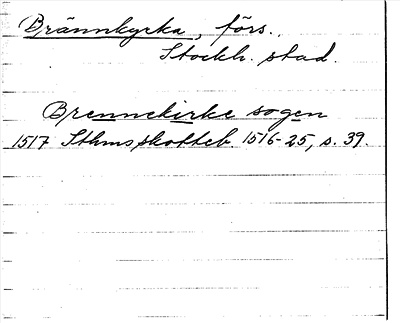 Brännkyrka, förs.
Stockh. stad.
Brennekirke sogen
1517 Sthms skotteb. 1516-25, s. 39.